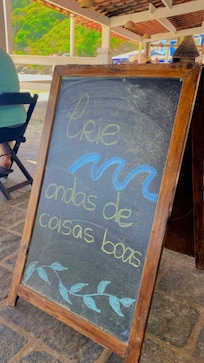 Crie
ondas de
coisas boas